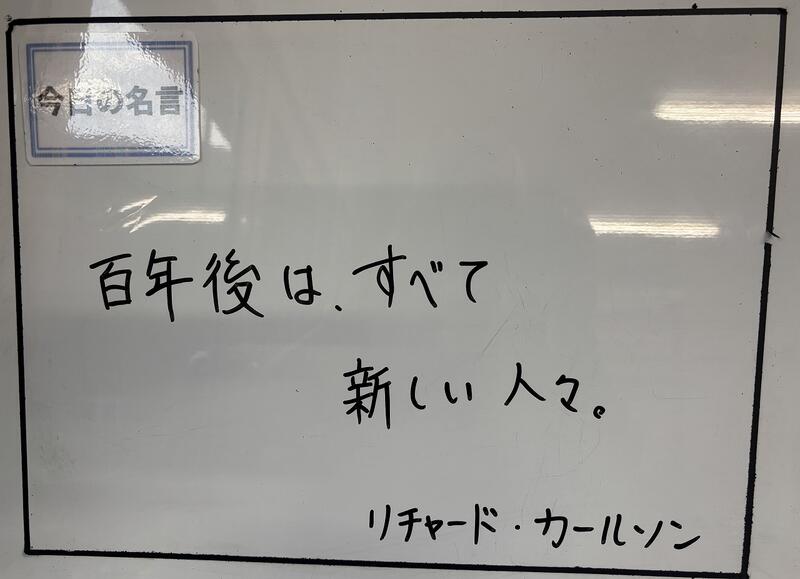 今日の名言
百年後は、すべて
新しい人々。
リチャード・カールソン